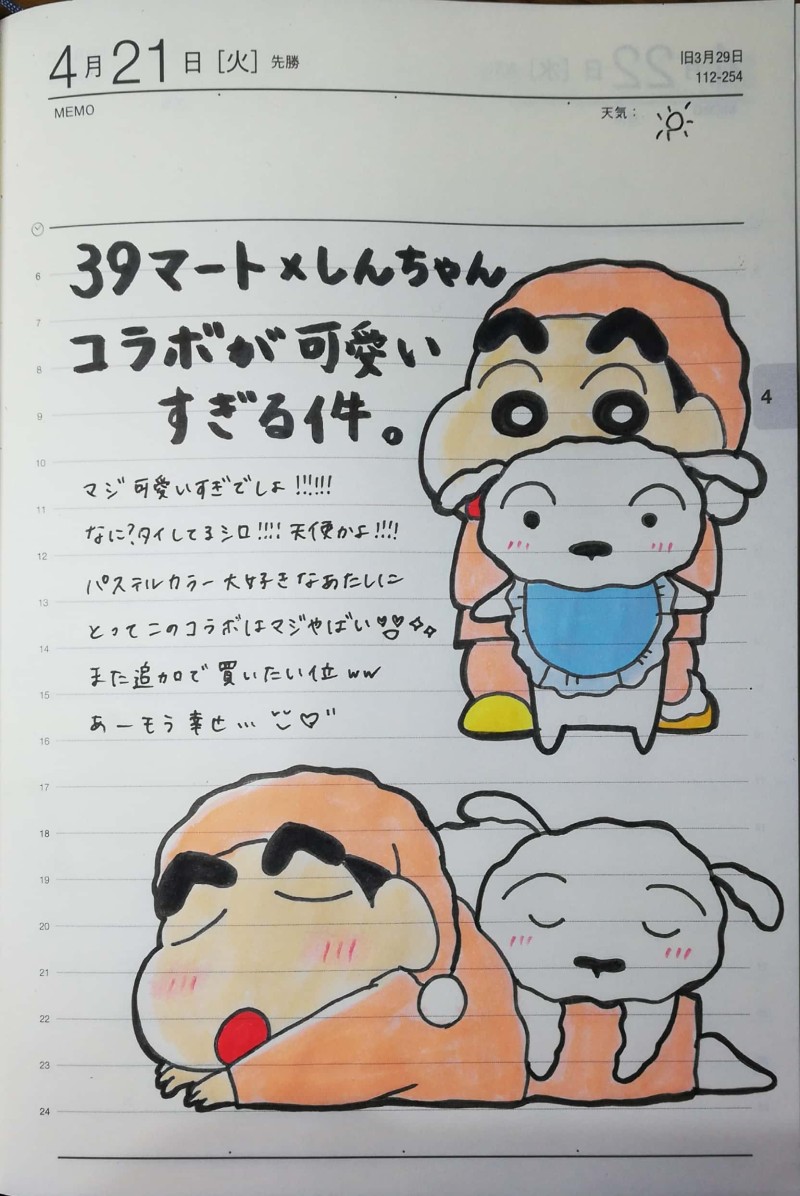 4月21日[火] 先勝
旧3月29日
112-254
MEMO
天気:
39マート×しんちゃん
コラボが可愛い
すぎる件。
マジ可愛いすぎでしょ!!!!!!
なに?タイしてるシロ!!!! 天使かよ!!!!
パステルカラー大好きなあたしに
とってこのコラボはマジやばい
また追加で買いたい位ww
あーもう幸せ…
4
6
7
8
9
10
11
12
13
14
15
16
17
18
19
20
21
22
23
24